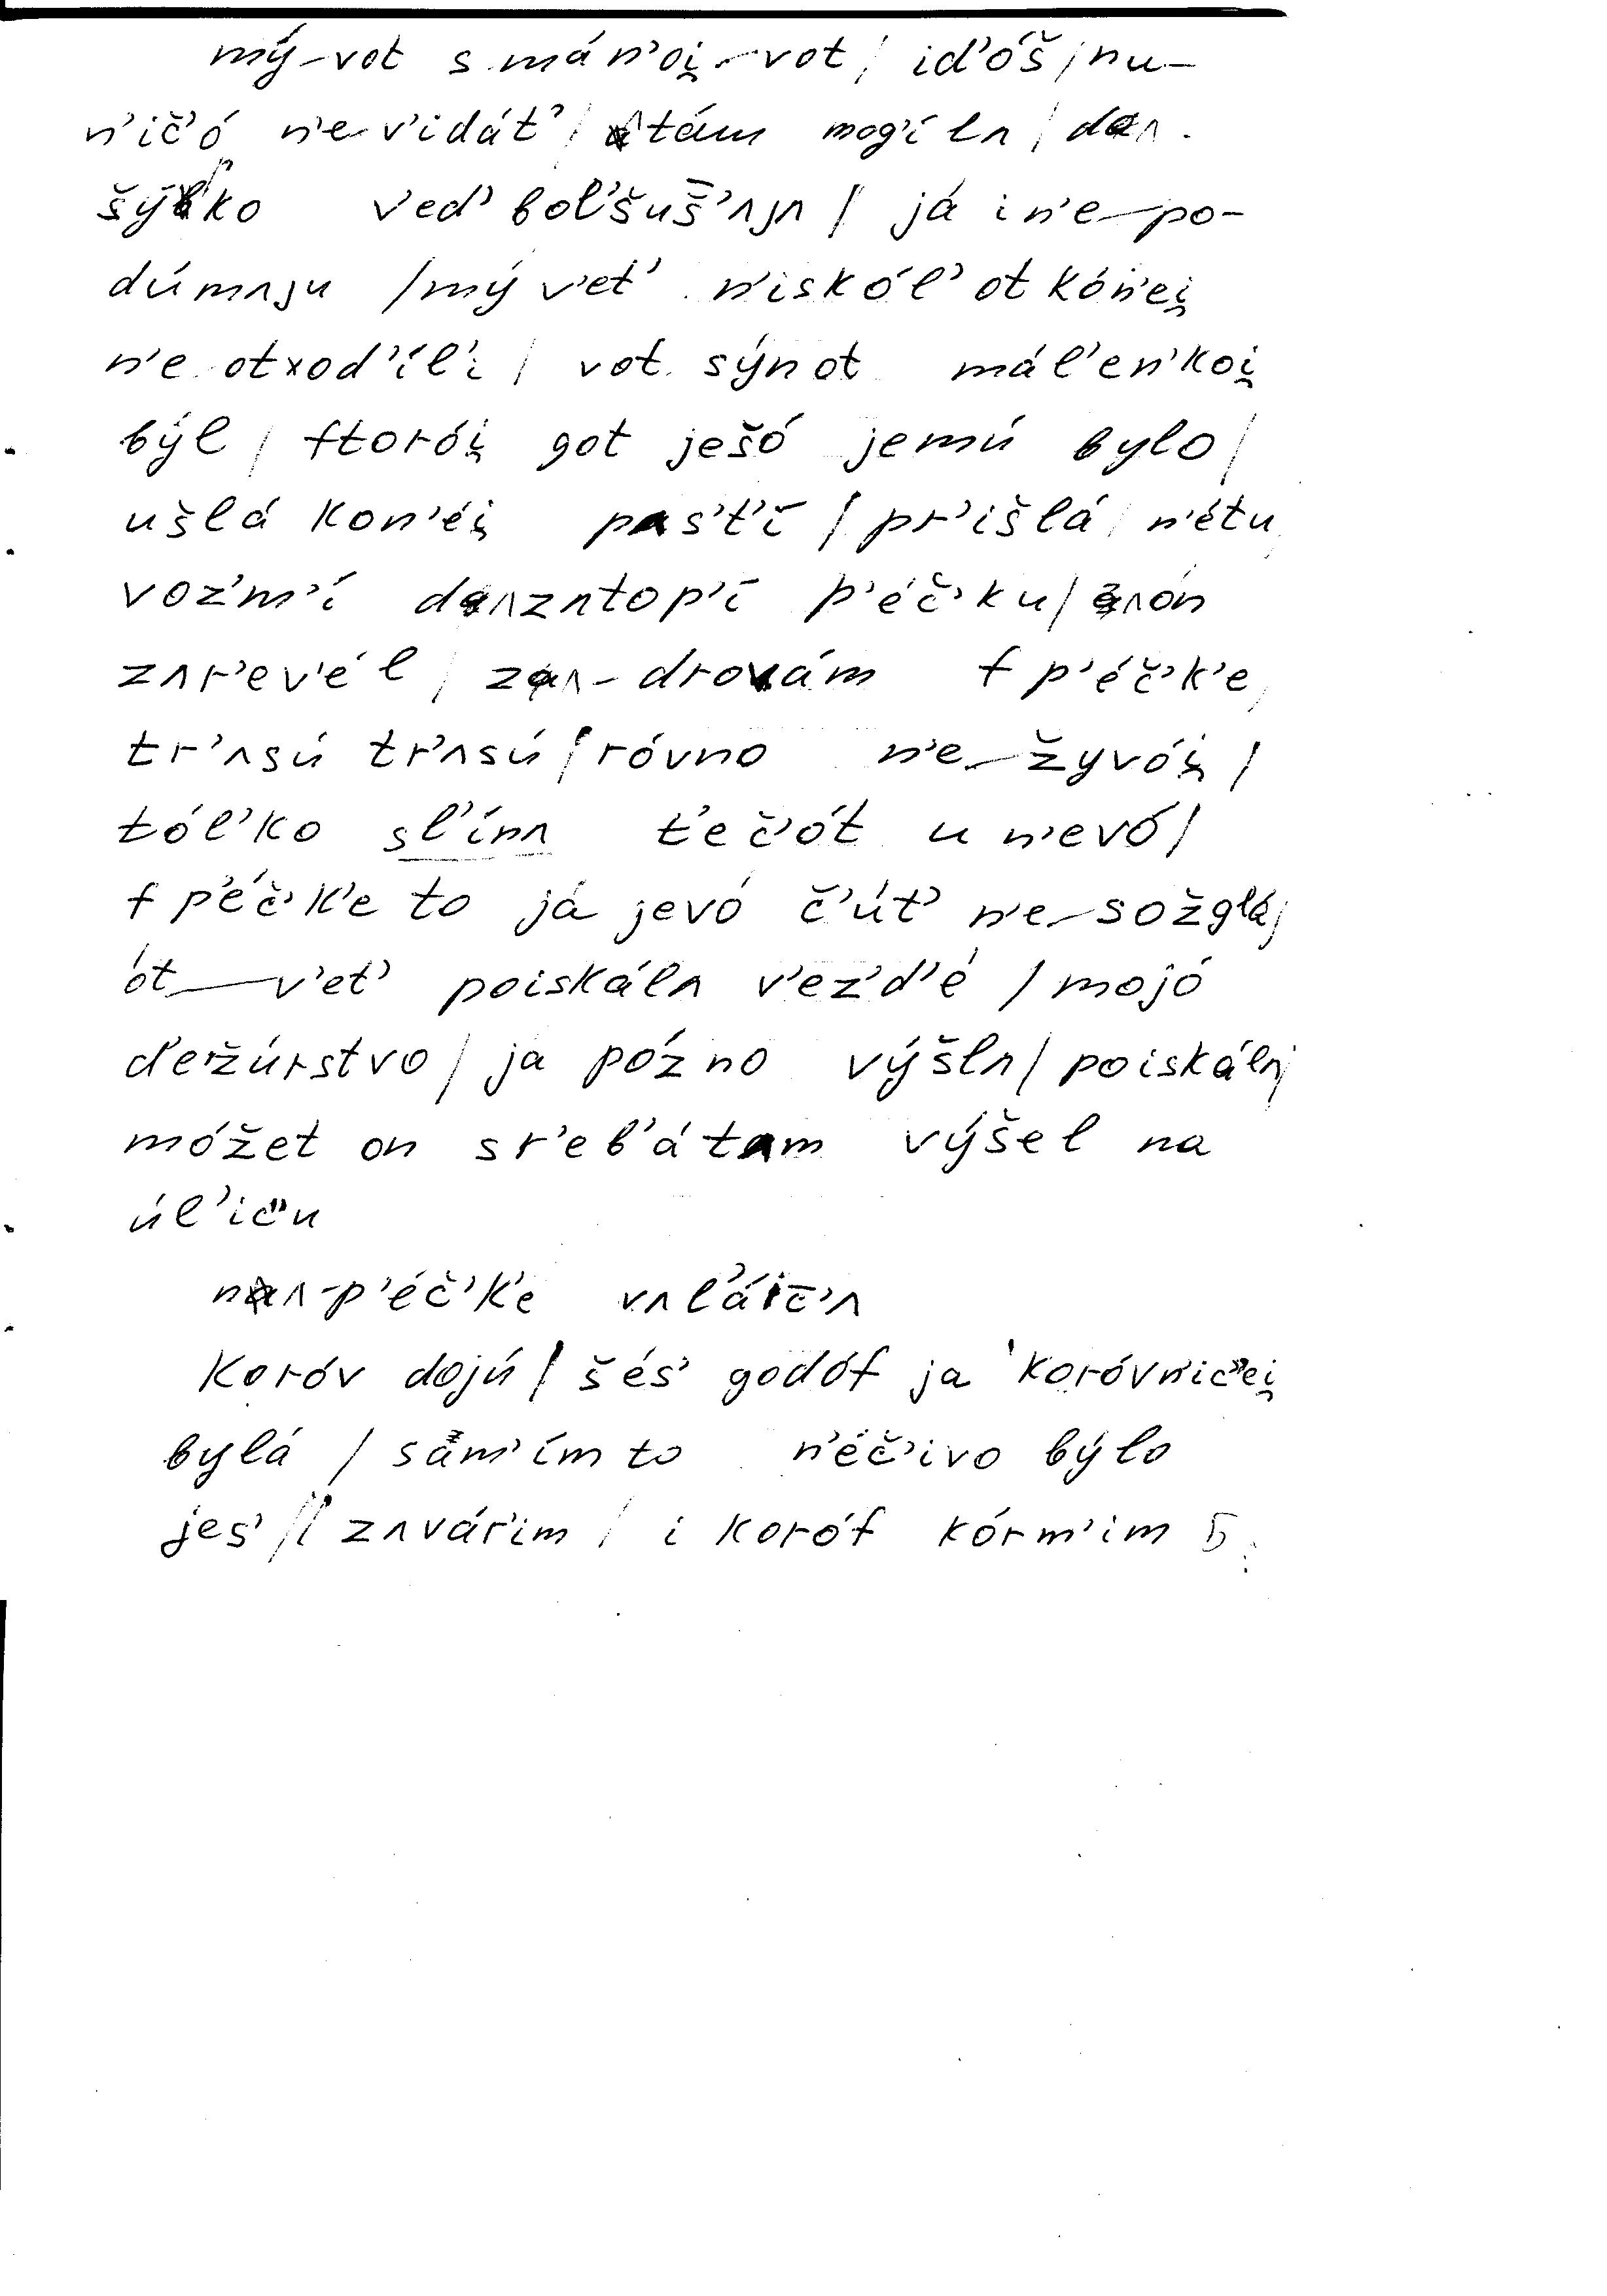 mý‿vot s mán'oi̯‿vot / id'óš / nu-
n'ič'ó n'e v'idát' / ʌ tám mog'ílʌ / dʌ
šýpko v'ed' bol'šuš̄'ʌjʌ / já i n'e‿po-
dúmʌju / mý v'et' n'iskól' ot kón'ei̯
n'e otxod'íl'i / vot sýn ot mál'en'koi̯
býl / ftorói̯ got ješ̄ó jemú bylo /
ušlá kon'éi̯ pʌs't'í / pr'išlá / n'étu
voz'm'í dʌ zʌtop'í p'éč'ku / ʌ ón
zʌr'ev'él / zʌ‿drovám f p'éč'k'e /
tr'ʌsú tr'ʌsú / róvno n'e‿žyvói̯ /
tól'ko sl'ínʌ t'eč'ót u n'evó /
f p'éč'k'e to já jevó č'út' n'e‿sožglá /
ót‿v'et' poiskálʌ v'ez'd'é / mojó
d'ežúrstvo / ja pózno výšlʌ / poiskálʌ /
móžet on s r'eb'átʌm výšel na
úl'ic"u
nʌ‿p'éč'k'e vʌl'áic̄'ʌ
koróv dojú / šés' godóf ja koróvn'ic"ei̯
bylá / sʌm'ím to n'éč'ivo býlo
jes' // zʌvár'im / i koróf kórm'im